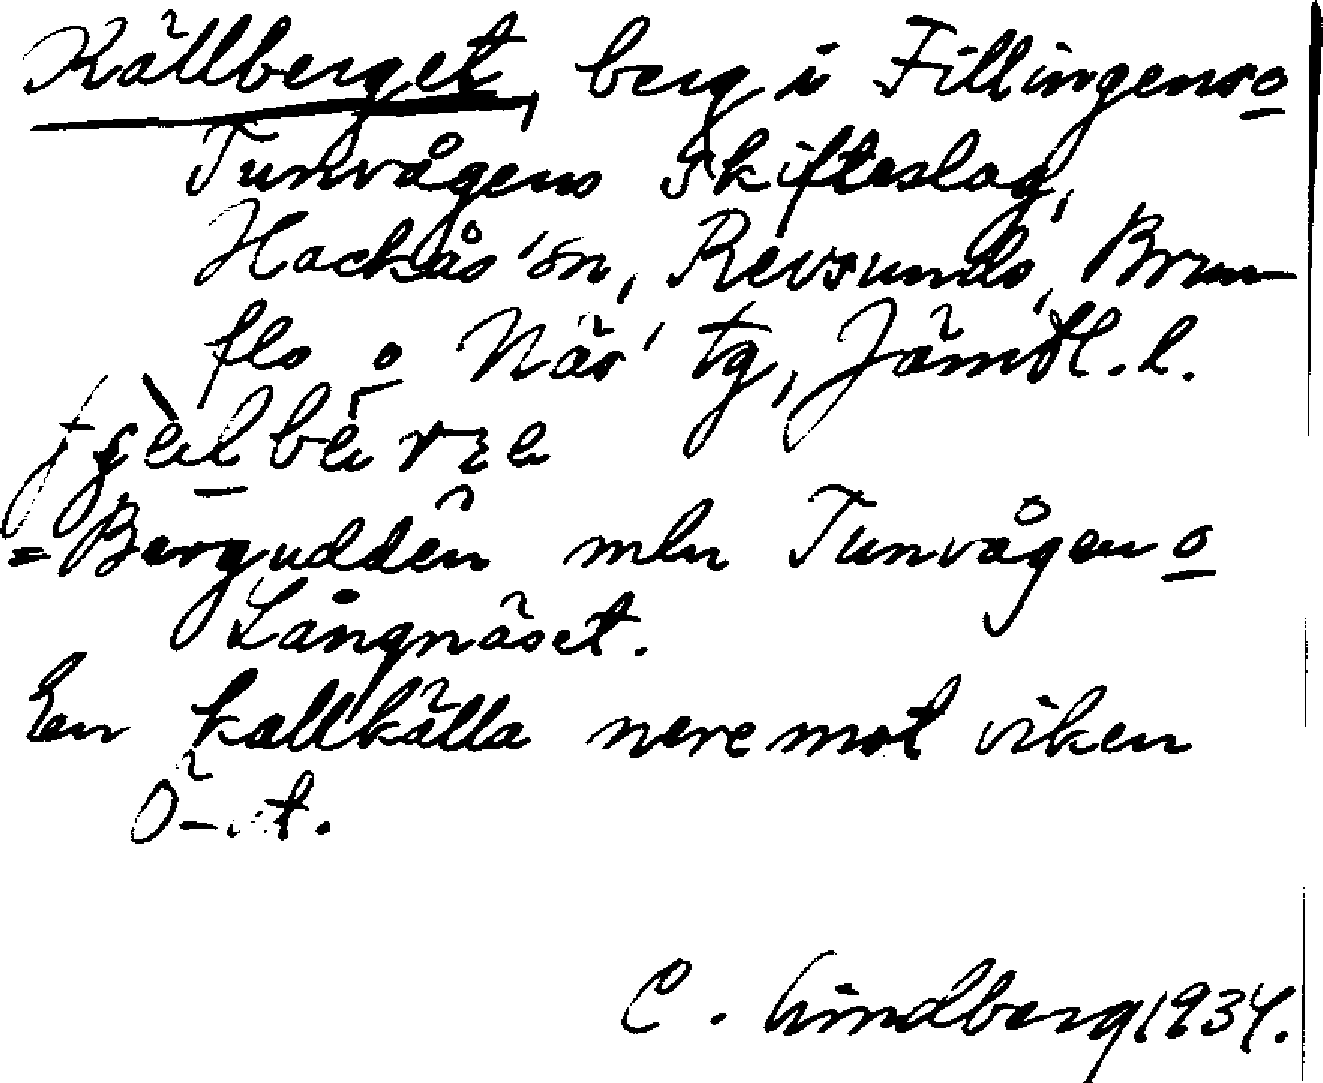 Källberget, berg i Fillingens o
Tunvågens Skifteslag,
Hackås sn, Revsunds, Brun-
flo o Näs tg, Jämtl. l.
= Bergudden mln Tunvågen o
Långnäset.
En kallkälla nere mot viken
C. Lindberg 1934.